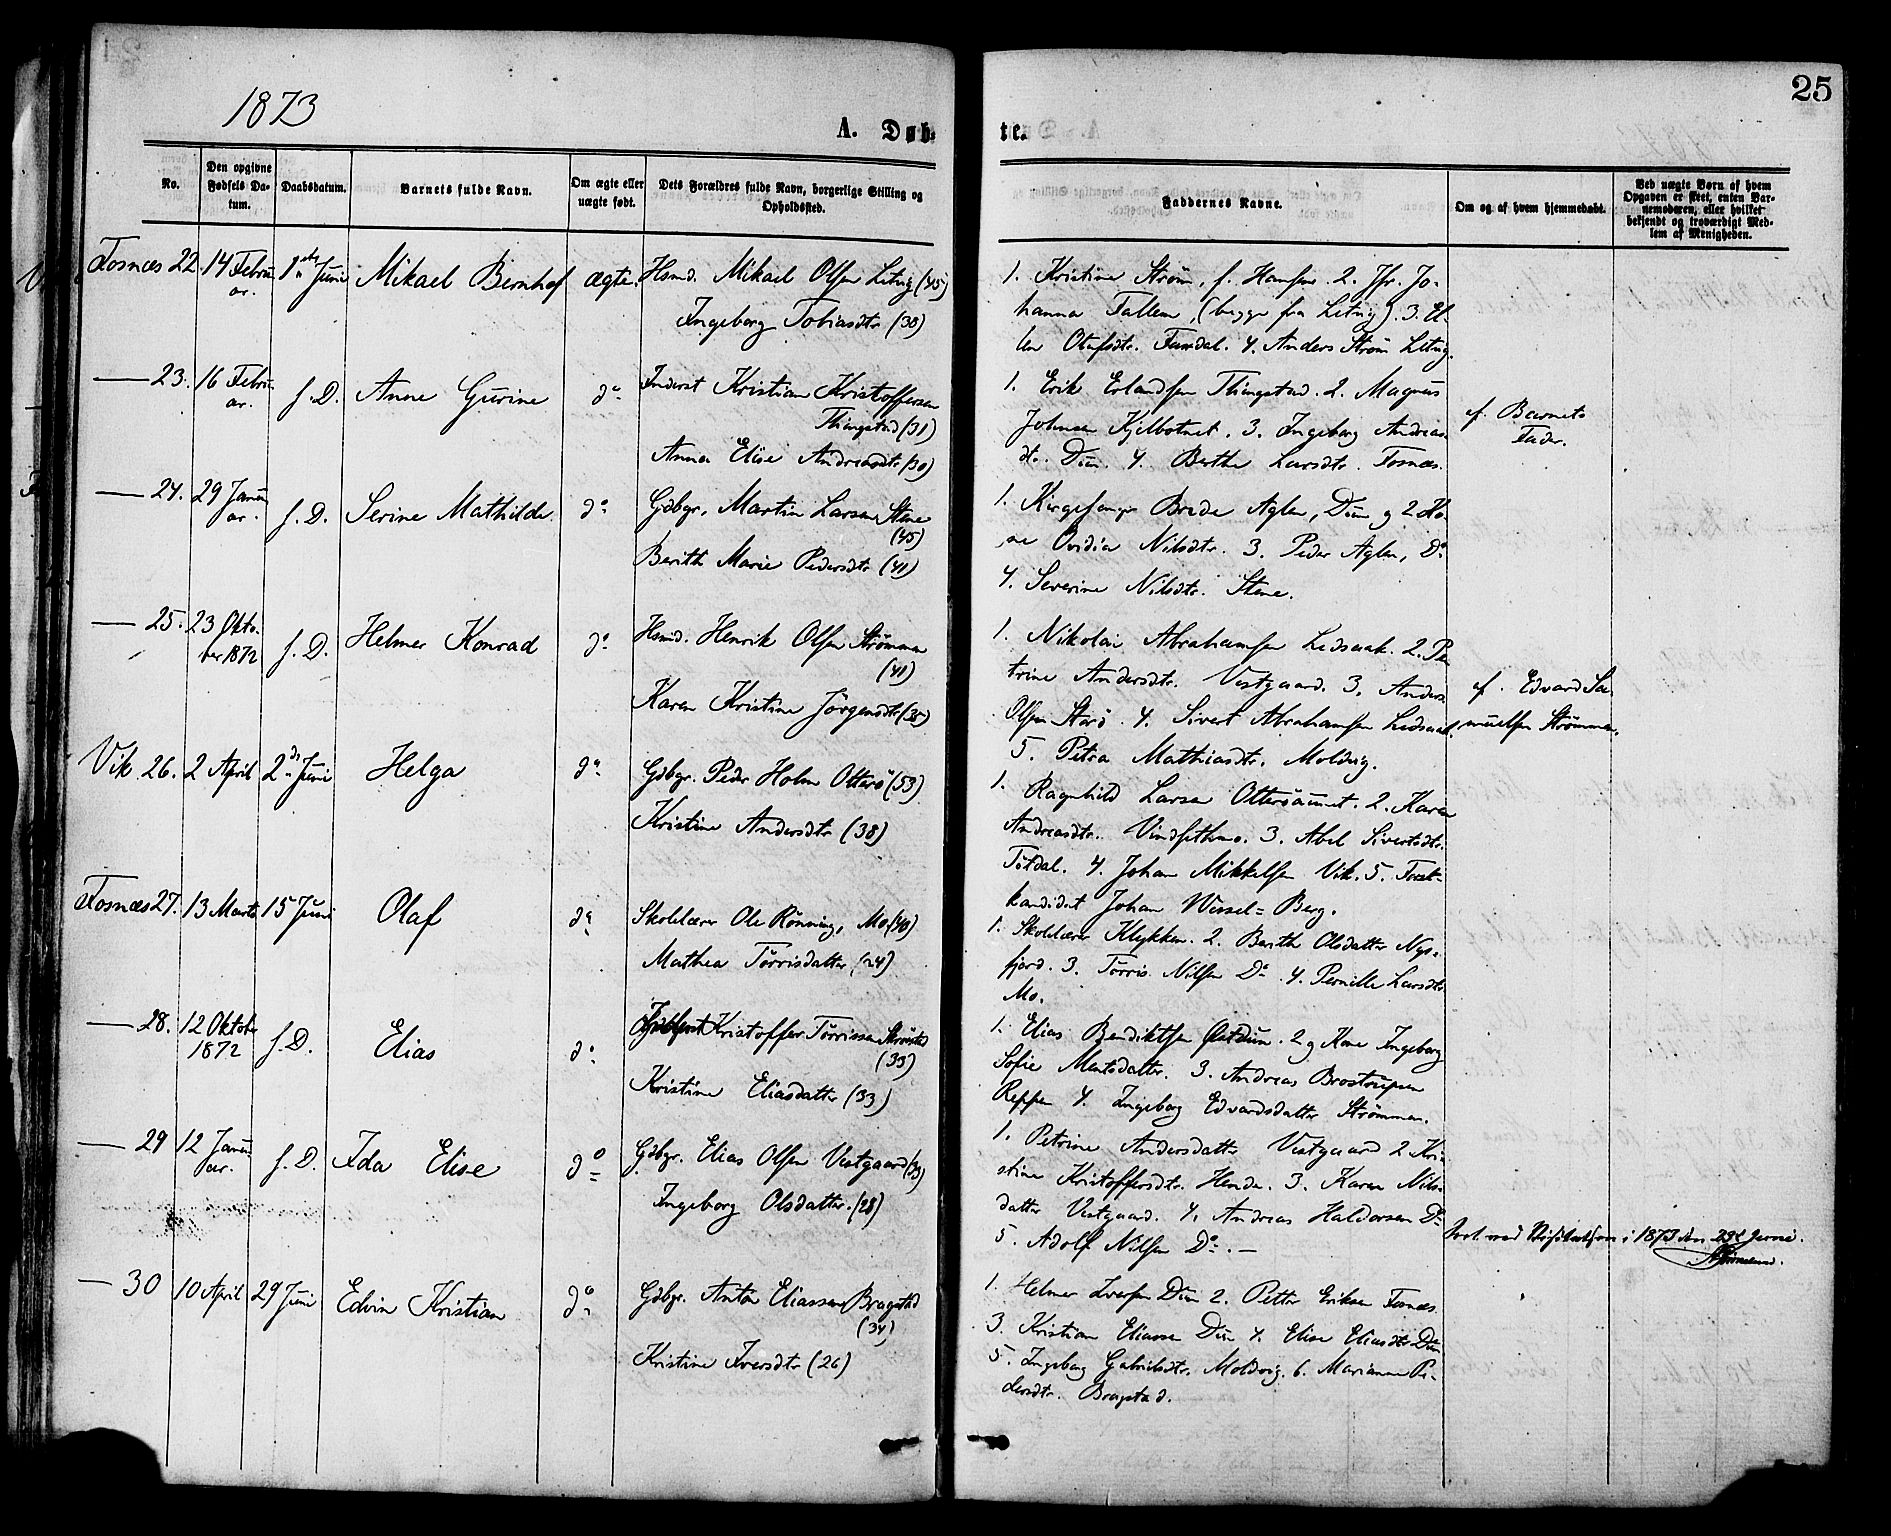 25
1873
A. Døb-
te.
No.
Den opgivne
Fødsels Da-
tum.
Daabsdatum.
Barnets fulde Navn.
Om ægte eller
uægte født.
Dets Forældres fulde Navn, borgerlige Stilling og
Opholdssted.
Faddernes Navne.
Om og af hvem hjemmedøbt.
Ved uægte Børn af hvem
Opgaven er skeet, enten Bar-
nemoderen, eller hvilket
bekjendt og troværdigt Med-
lem af Menigheden.
Fosnæs 22. 14 Febru 1ste Juni Mikael Bernhof ægte. Hsmd. Mikael Olsen Letvig (45)
ar.
Ingeborg Tobiasdtr (30)
1. Kristine Strøm, f. Hansen. 2. Jfr. Jo-
hanna Fallem, (begge fra Letvig). 3. El-
len Olufsdtr. Faxdal. 4. Anders Strøm Letvig.
— 23. 16 Febru f. D. Anne Gurine do Inderst Kristian Kristoffersen
ar.
Thingstad (31)
Anna Elise Andreasdtr (30)
1. Erik Erlandsen Thingstad. 2. Magnus
Johnsen Kjelbotnet. 3. Ingeborg Andreas-
dt. Dun. 4. Berthe Larsdtr. Fosnæs.
af. Barnets
Fader.
— 24. 29 Janu f. D. Serine Mathilde. do Gdbgr. Martin Larsen Stene
ar.
(45)
Berith Marie Pedersdtr (41)
1. Kirgesanger Brede Aglen, Dun og 2 Ko-
ne Ovidia Nilsdtr. 3. Peder Aglen, Do
4. Severine Nilsdtr. Stene.
— 25. 23 Okto- f. D. Helmer Konrad do Hsmd. Henrik Olsen Strømmen
ber 1872
(41)
Karen Kristine Jörgensdtr (35)
1. Nikolai Abrahamsen Lidsaak. 2. Pe
trine Andersdtr. Vestgaard. 3. Anders
Olsen Starö. 4. Sivert Abrahamsen Lidsaak,
5. Petra Mathiasdtr. Moldvig.
af. Edvard Sa-
muelsen Strømmen.
Vik 26. 2 April 2den Juni Helga do Gdbgr. Peder Holm Otterö (53)
Kristine Andersdtr (38)
1. Ragnhild Larsen Otteröaunet. 2. Karen
Andreasdtr. Vindsethmo. 3. Abel Sivertsdtr.
Totdal. 4. Johan Mikkelsen Vik. 5. Forst-
kandidat Johan Wessel=Berg.
Fosnæs 27. 13 Marts 15 Juni Olaf do Skolelærer Ole Rönning, Mo (40)
Mathea Törrisdatter (24)
1. Skolelærer Klykken. 2. Berith Olsdatter Nys-
fjord. 3. Törris Nilsen Do 4. Pernille Larsdtr.
Mo.
— 28. 12 Oktober f. D. Elias do Kristoffer Törrissen
1872
(33)
Kristine Eliasdatter (33)
1. Elias Bendiktsen Östdun. 2 og Kone Ingeborg
Sofie Mentsdatter. 3. Andreas Brostrupsen
Reppen 4. Ingeborg Edvardsdatter Strömmen.
— 29 12 Janu f. D. Ida Elise do Gdbgr. Elias Olsen Vestgaard
ar.
Ingeborg Olsdatter. (28)
1. Petrine Andersdatter Vestgaard 2 Kri-
stine Kristoffersdtr. Hende. 3. Karen Nils-
datter Vestgaard. 4. Andreas Haldorsen Do
5. Adolf Nilsen Do. —
i 1873 den
— 30 10 April 29 Juni Edvin Kristian do Gdbgr. Anton Eliassen Bragstad
(34)
Kristine Iversdtr (26)
1. Helmer Iversen Dun 2. Petter Eriksen Fosnæs
3. Kristian Eliassen Dun 4. Elise Eliasdtr Dun
5. Ingeborg Gabrielsdtr. Moldvig. 6. Marianne Pe-
dersdtr. Bragstad.